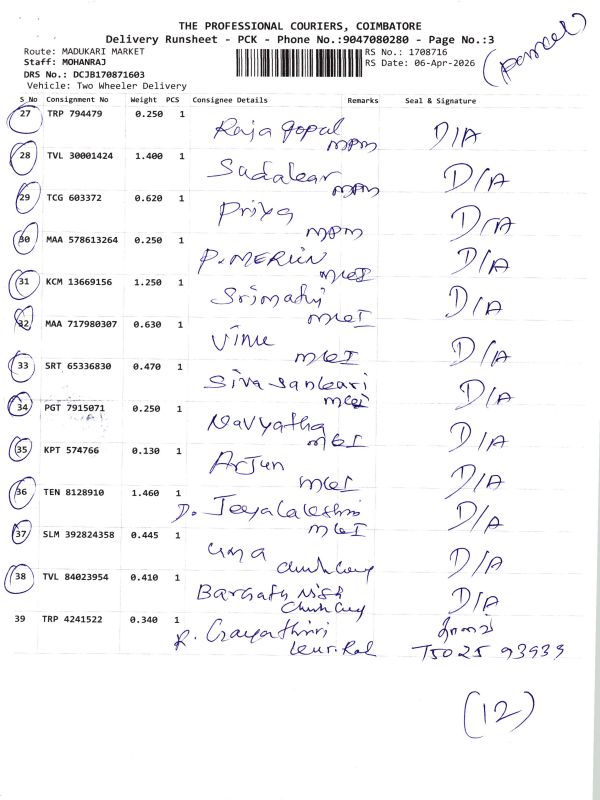 THE PROFESSIONAL COURIERS, COIMBATORE
Delivery Runsheet - PCK - Phone No.:9047080280 - Page No.:3
Route: MADUKARI MARKET
Staff: MOHANRAJ
DRS No.: DCJB170871603
Vehicle: Two Wheeler Delivery
RS No.: 1708716
RS Date: 06-Apr-2026
(parcel)
S_No Consignment No Weight PCS Consignee Details Remarks Seal & Signature
27 TRP 794479 0.250 1 Raja gopal mpm D/A
28 TVL 30001424 1.400 1 mpm D/A
29 TCG 603372 0.620 1 Priya mpm D/A
30 MAA 578613264 0.250 1 P. MERLIN D/A
31 KCM 13669156 1.250 1 Srimathi D/A
32 MAA 717980307 0.630 1 D/A
33 SRT 65336830 0.470 1 Siva Sankari D/A
34 PGT 7915071 0.250 1 Navyatha D/A
35 KPT 574766 0.130 1 Arjun D/A
36 TEN 8128910 1.460 1 D. D/A
37 SLM 392824358 0.445 1 Uma D/A
38 TVL 84023954 0.410 1 D/A
39 TRP 4241522 0.340 1 R. Gayathiri
(12)